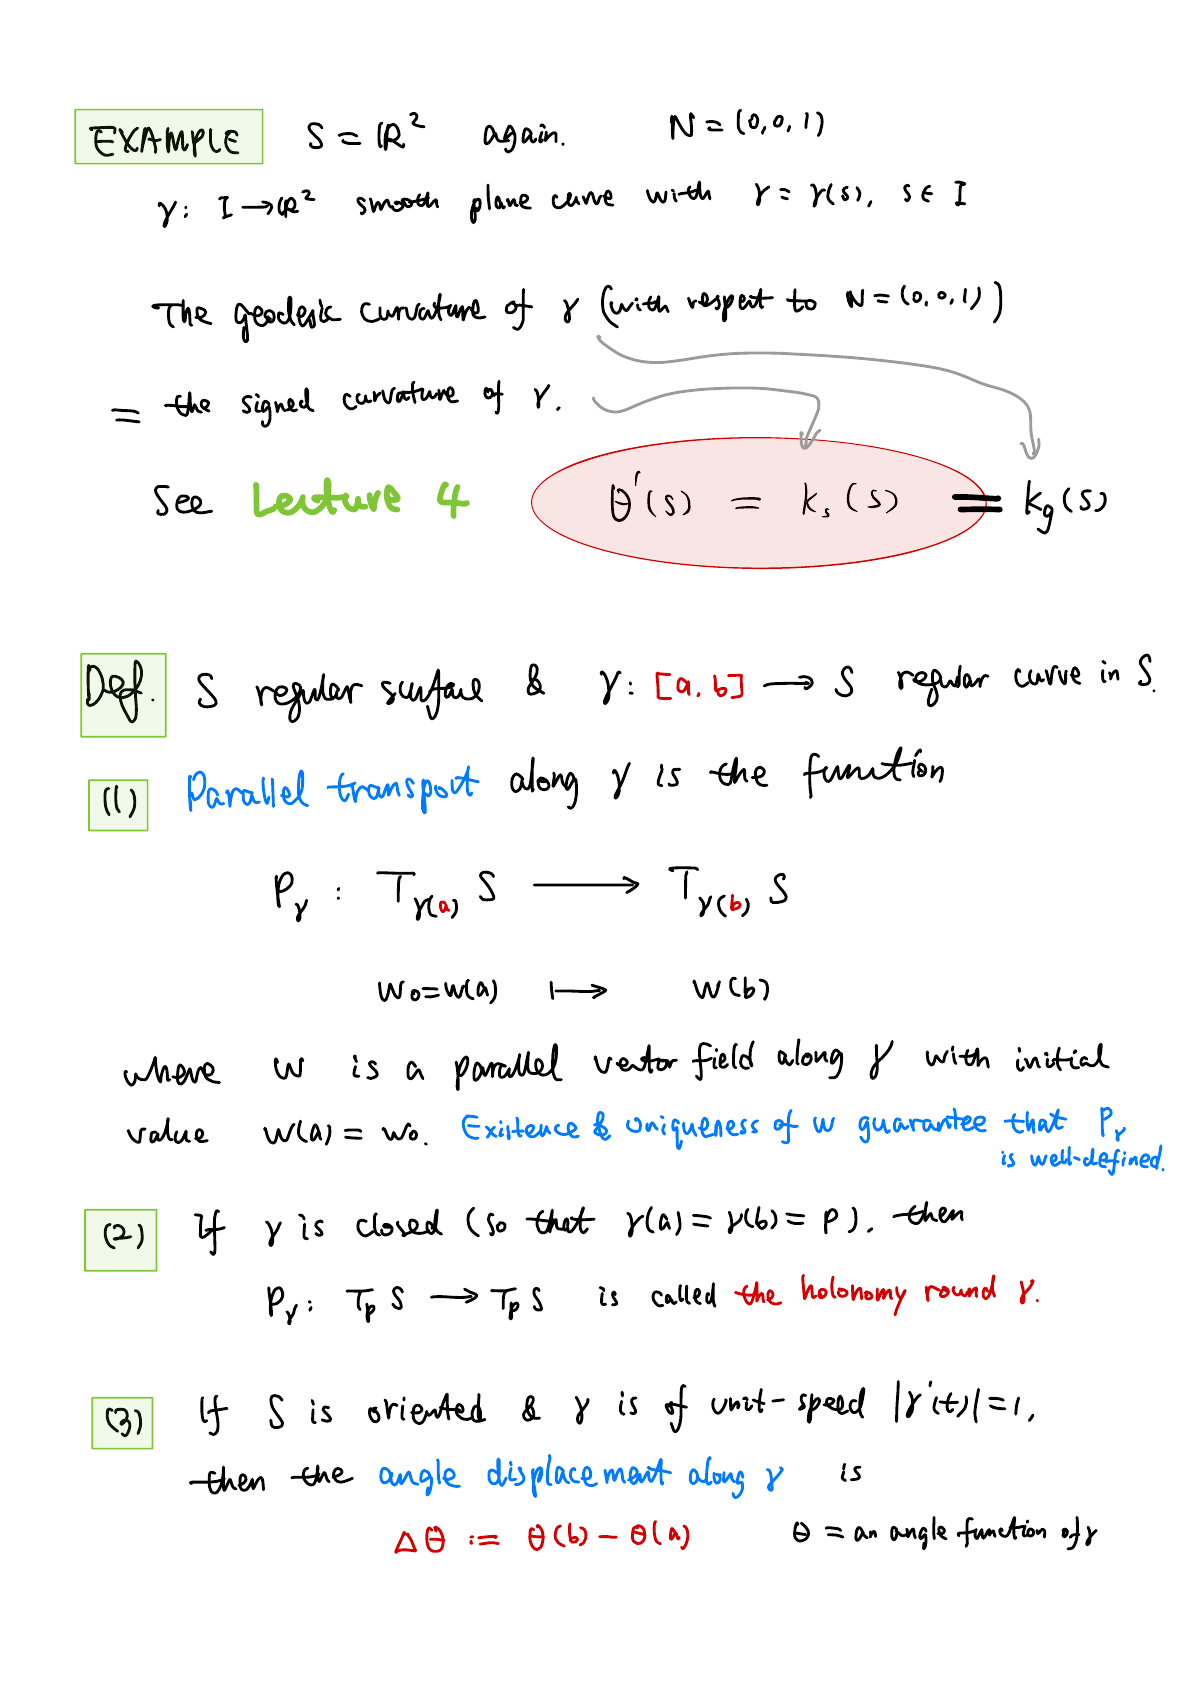 EXAMPLE S = ℝ² again. N = (0,0,1)
γ: I → ℝ² smooth plane curve with γ = γ(s), s ∈ I
The geodesic curvature of γ (with respect to N = (0,0,1))
= the signed curvature of γ.
See Lecture 4 θ'(s) = kₛ(s) = k_g(s)
Def. S regular surface & γ: [a,b] → S regular curve in S.
(1) Parallel transport along γ is the function
P_γ : T_γ(a) S → T_γ(b) S
w₀=w(a) ↦ w(b)
where w is a parallel vector field along γ with initial
value w(a) = w₀. Existence & uniqueness of w guarantee that P_γ
is well-defined.
(2) If γ is closed (so that γ(a) = γ(b) = p), then
P_γ: T_p S → T_p S is called the holonomy round γ.
(3) If S is oriented & γ is of unit-speed |γ'(t)|=1,
then the angle displacement along γ is
Δθ := θ(b) − θ(a) θ = an angle function of γ